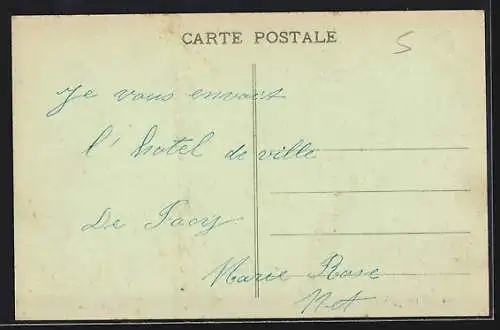 CARTE POSTALE
5
Je vous envois
l'hotel de ville
De Facy
Marie Rose